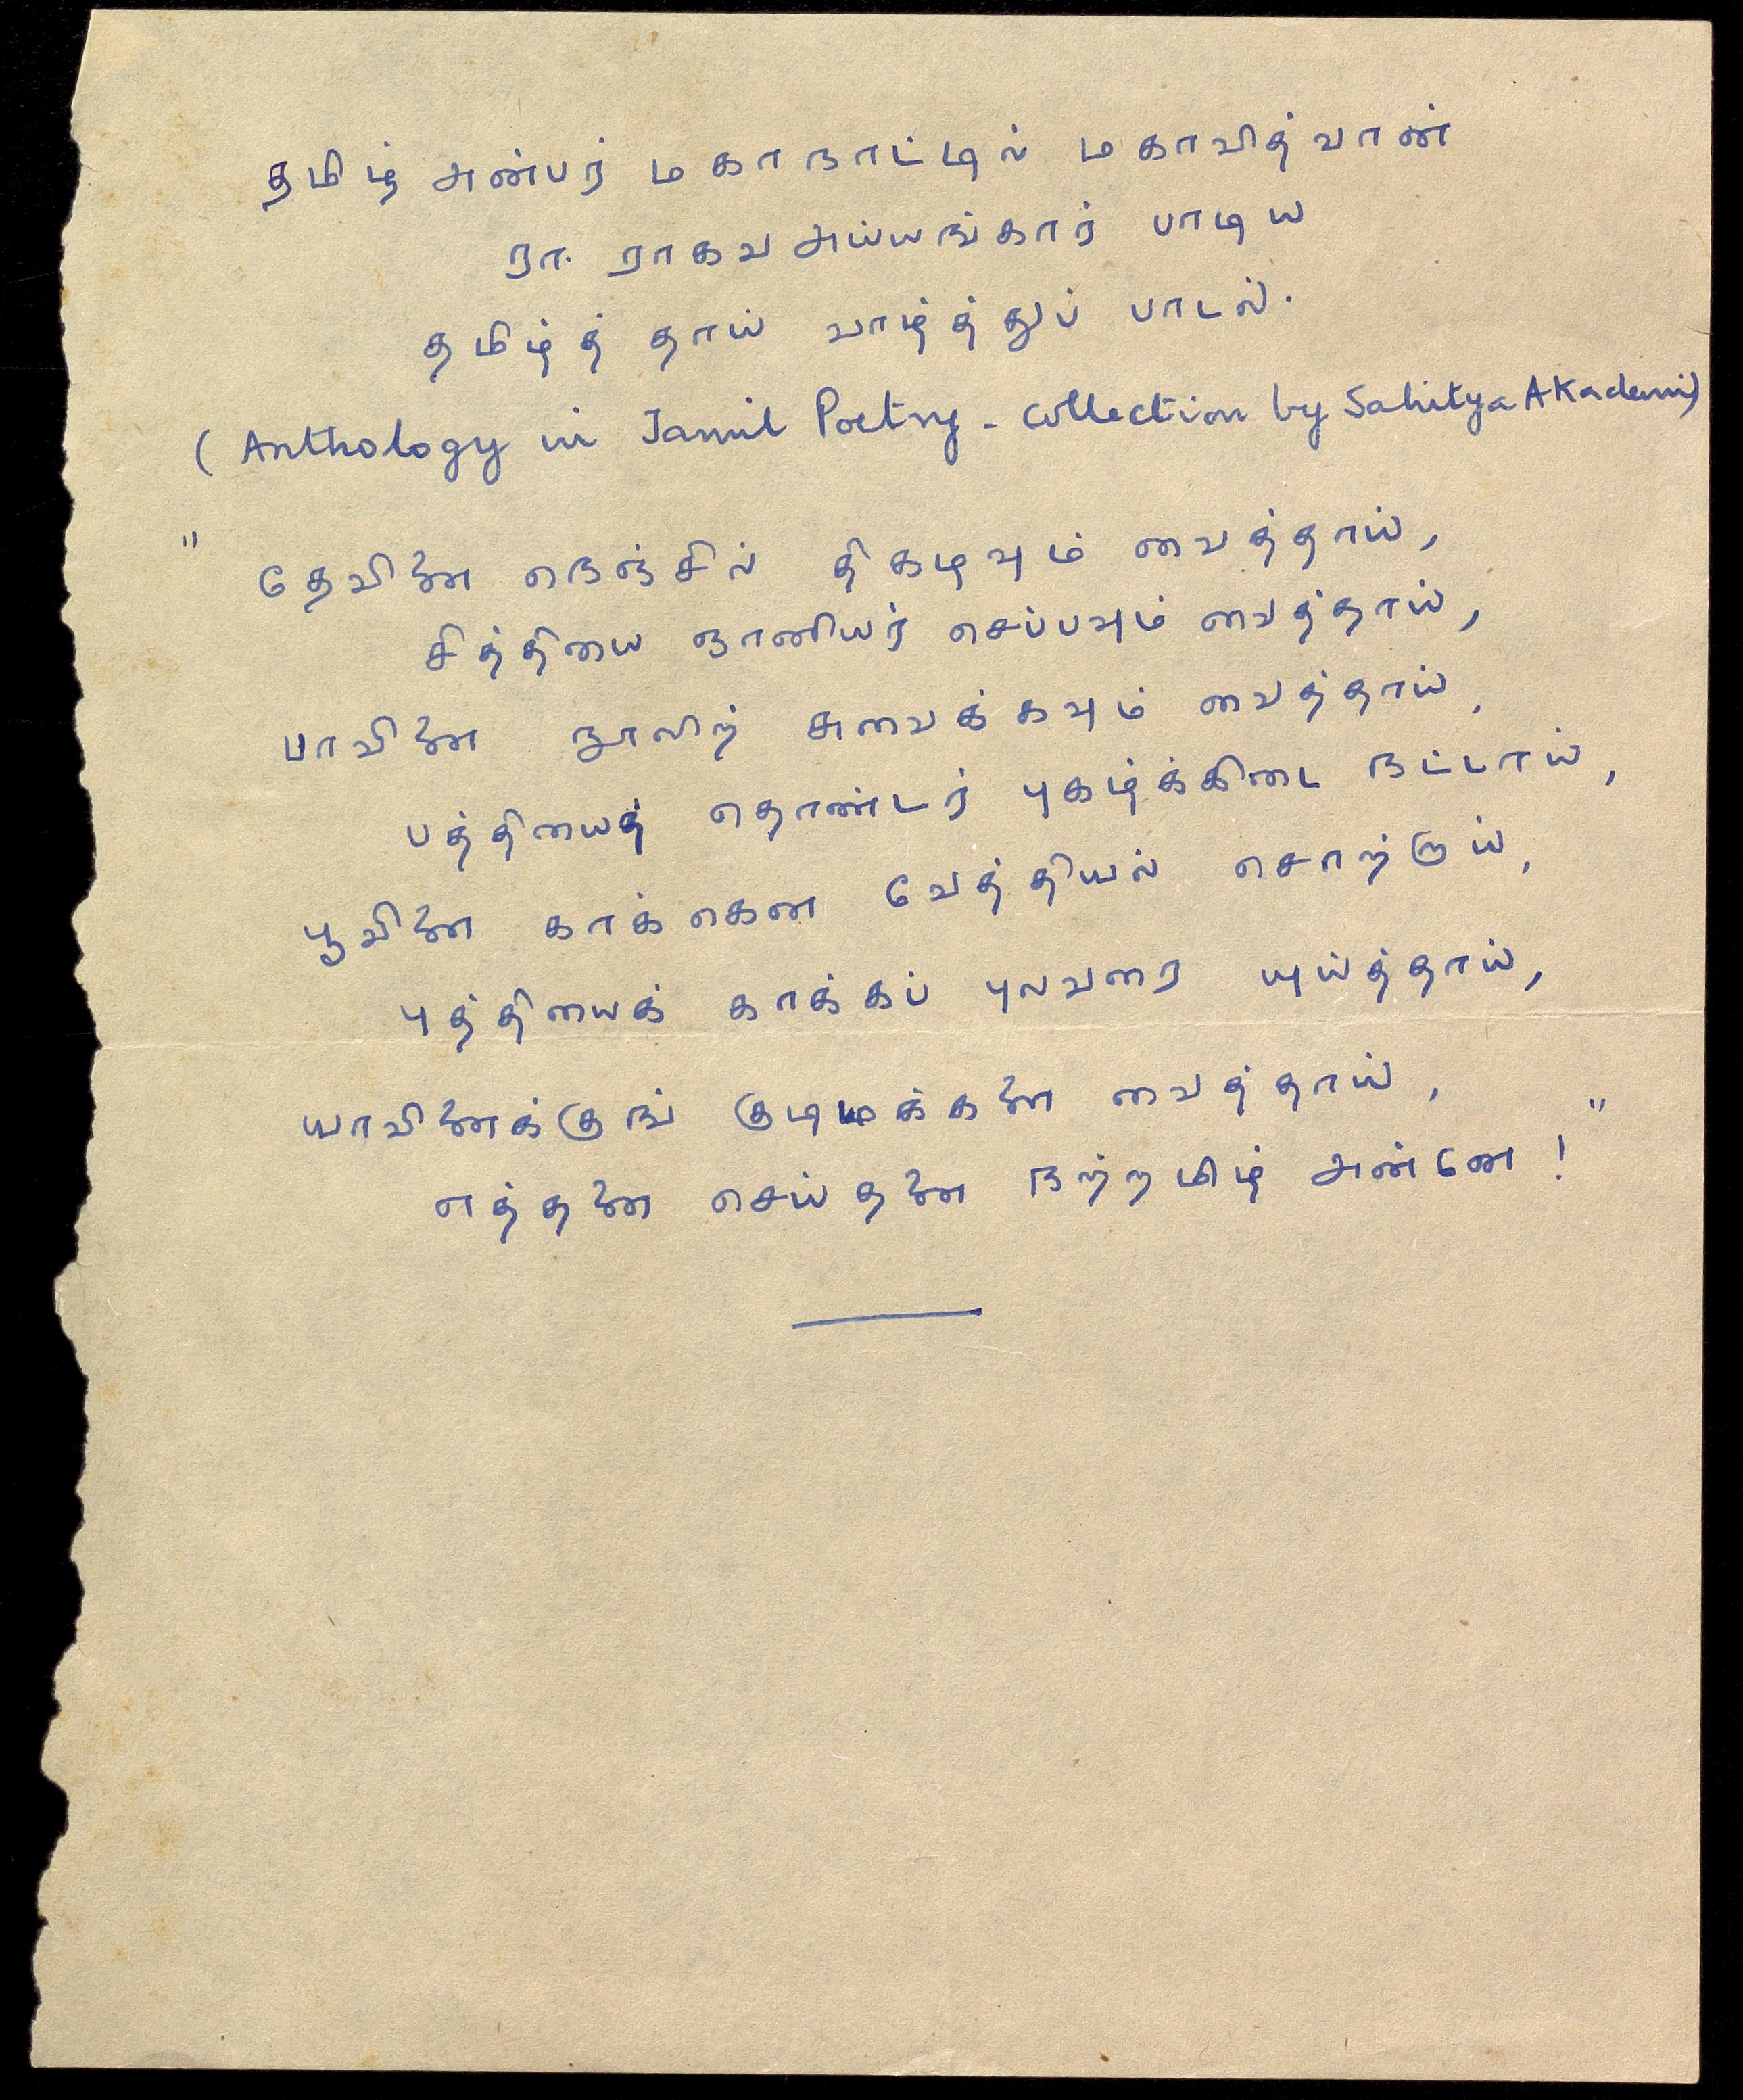 தமிழ் அன்பர் மகாநாட்டில் மகாவித்வான்
ரா. ராகவ அய்யங்கார் பாடிய
தமிழ்த் தாய் வாழ்த்துப் பாடல்.
(Anthology in Tamil Poetry - Collection by Sahitya Akademi)
" தேவினை நெஞ்சில் திகழவும் வைத்தாய்,
சித்தியை ஞானியர் செப்பவும் வைத்தாய்,
பாவினை நூலிற் சுவைக்கவும் வைத்தாய்,
பத்தியைத் தொண்டர் புகழ்க்கிடை நட்டாய்,
பூவினை காக்கென வேத்தியல் சொற்றாய்,
புத்தியைக் காக்கப் புலவரை யுய்த்தாய்,
யாவினைக்குங் குடிமக்களை வைத்தாய்,
எத்தனை செய்தனை நற்றமிழ் அன்னே! "